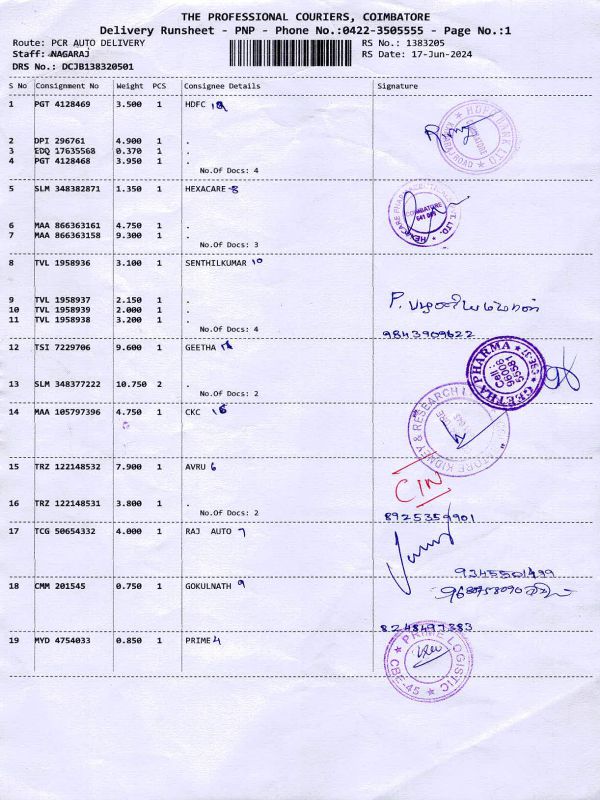 THE PROFESSIONAL COURIERS, COIMBATORE
Delivery Runsheet - PNP - Phone No.:0422-3505555 - Page No.:1
Route: PCR AUTO DELIVERY
RS No.: 1383205
Staff: NAGARAJ
RS Date: 17-Jun-2024
DRS No.: DCJB138320501
S No Consignment No Weight PCS Consignee Details Signature
1 PGT 4128469 3.500 1 HDFC
2 DPI 296761 4.900 1 .
3 EDQ 17635568 0.370 1 .
4 PGT 4128468 3.950 1 .
No.Of Docs: 4
5 SLM 348382871 1.350 1 HEXACARE 8
COIMBATORE
641 045
6 MAA 866363161 4.750 1 .
7 MAA 866363158 9.300 1 .
No.Of Docs: 3
8 TVL 1958936 3.100 1 SENTHILKUMAR 10
9 TVL 1958937 2.150 1 .
10 TVL 1958939 2.000 1 .
11 TVL 1958938 3.200 1 .
No.Of Docs: 4
9843909622
12 TSI 7229706 9.600 1 GEETHA
GEETHA PHARMA
13 SLM 348377222 10.750 2 .
No.Of Docs: 2
14 MAA 105797396 4.750 1 CKC
KIDNEY & RESEARCH
15 TRZ 122148532 7.900 1 AVRU 6
CIN
16 TRZ 122148531 3.800 1 .
No.Of Docs: 2
8925354901
17 TCG 50654332 4.000 1 RAJ AUTO 7
9345501499
18 CMM 201545 0.750 1 GOKULNATH 9
8248497383
19 MYD 4754033 0.850 1 PRIME 4
PRIME LOGISTIC
CBE-45